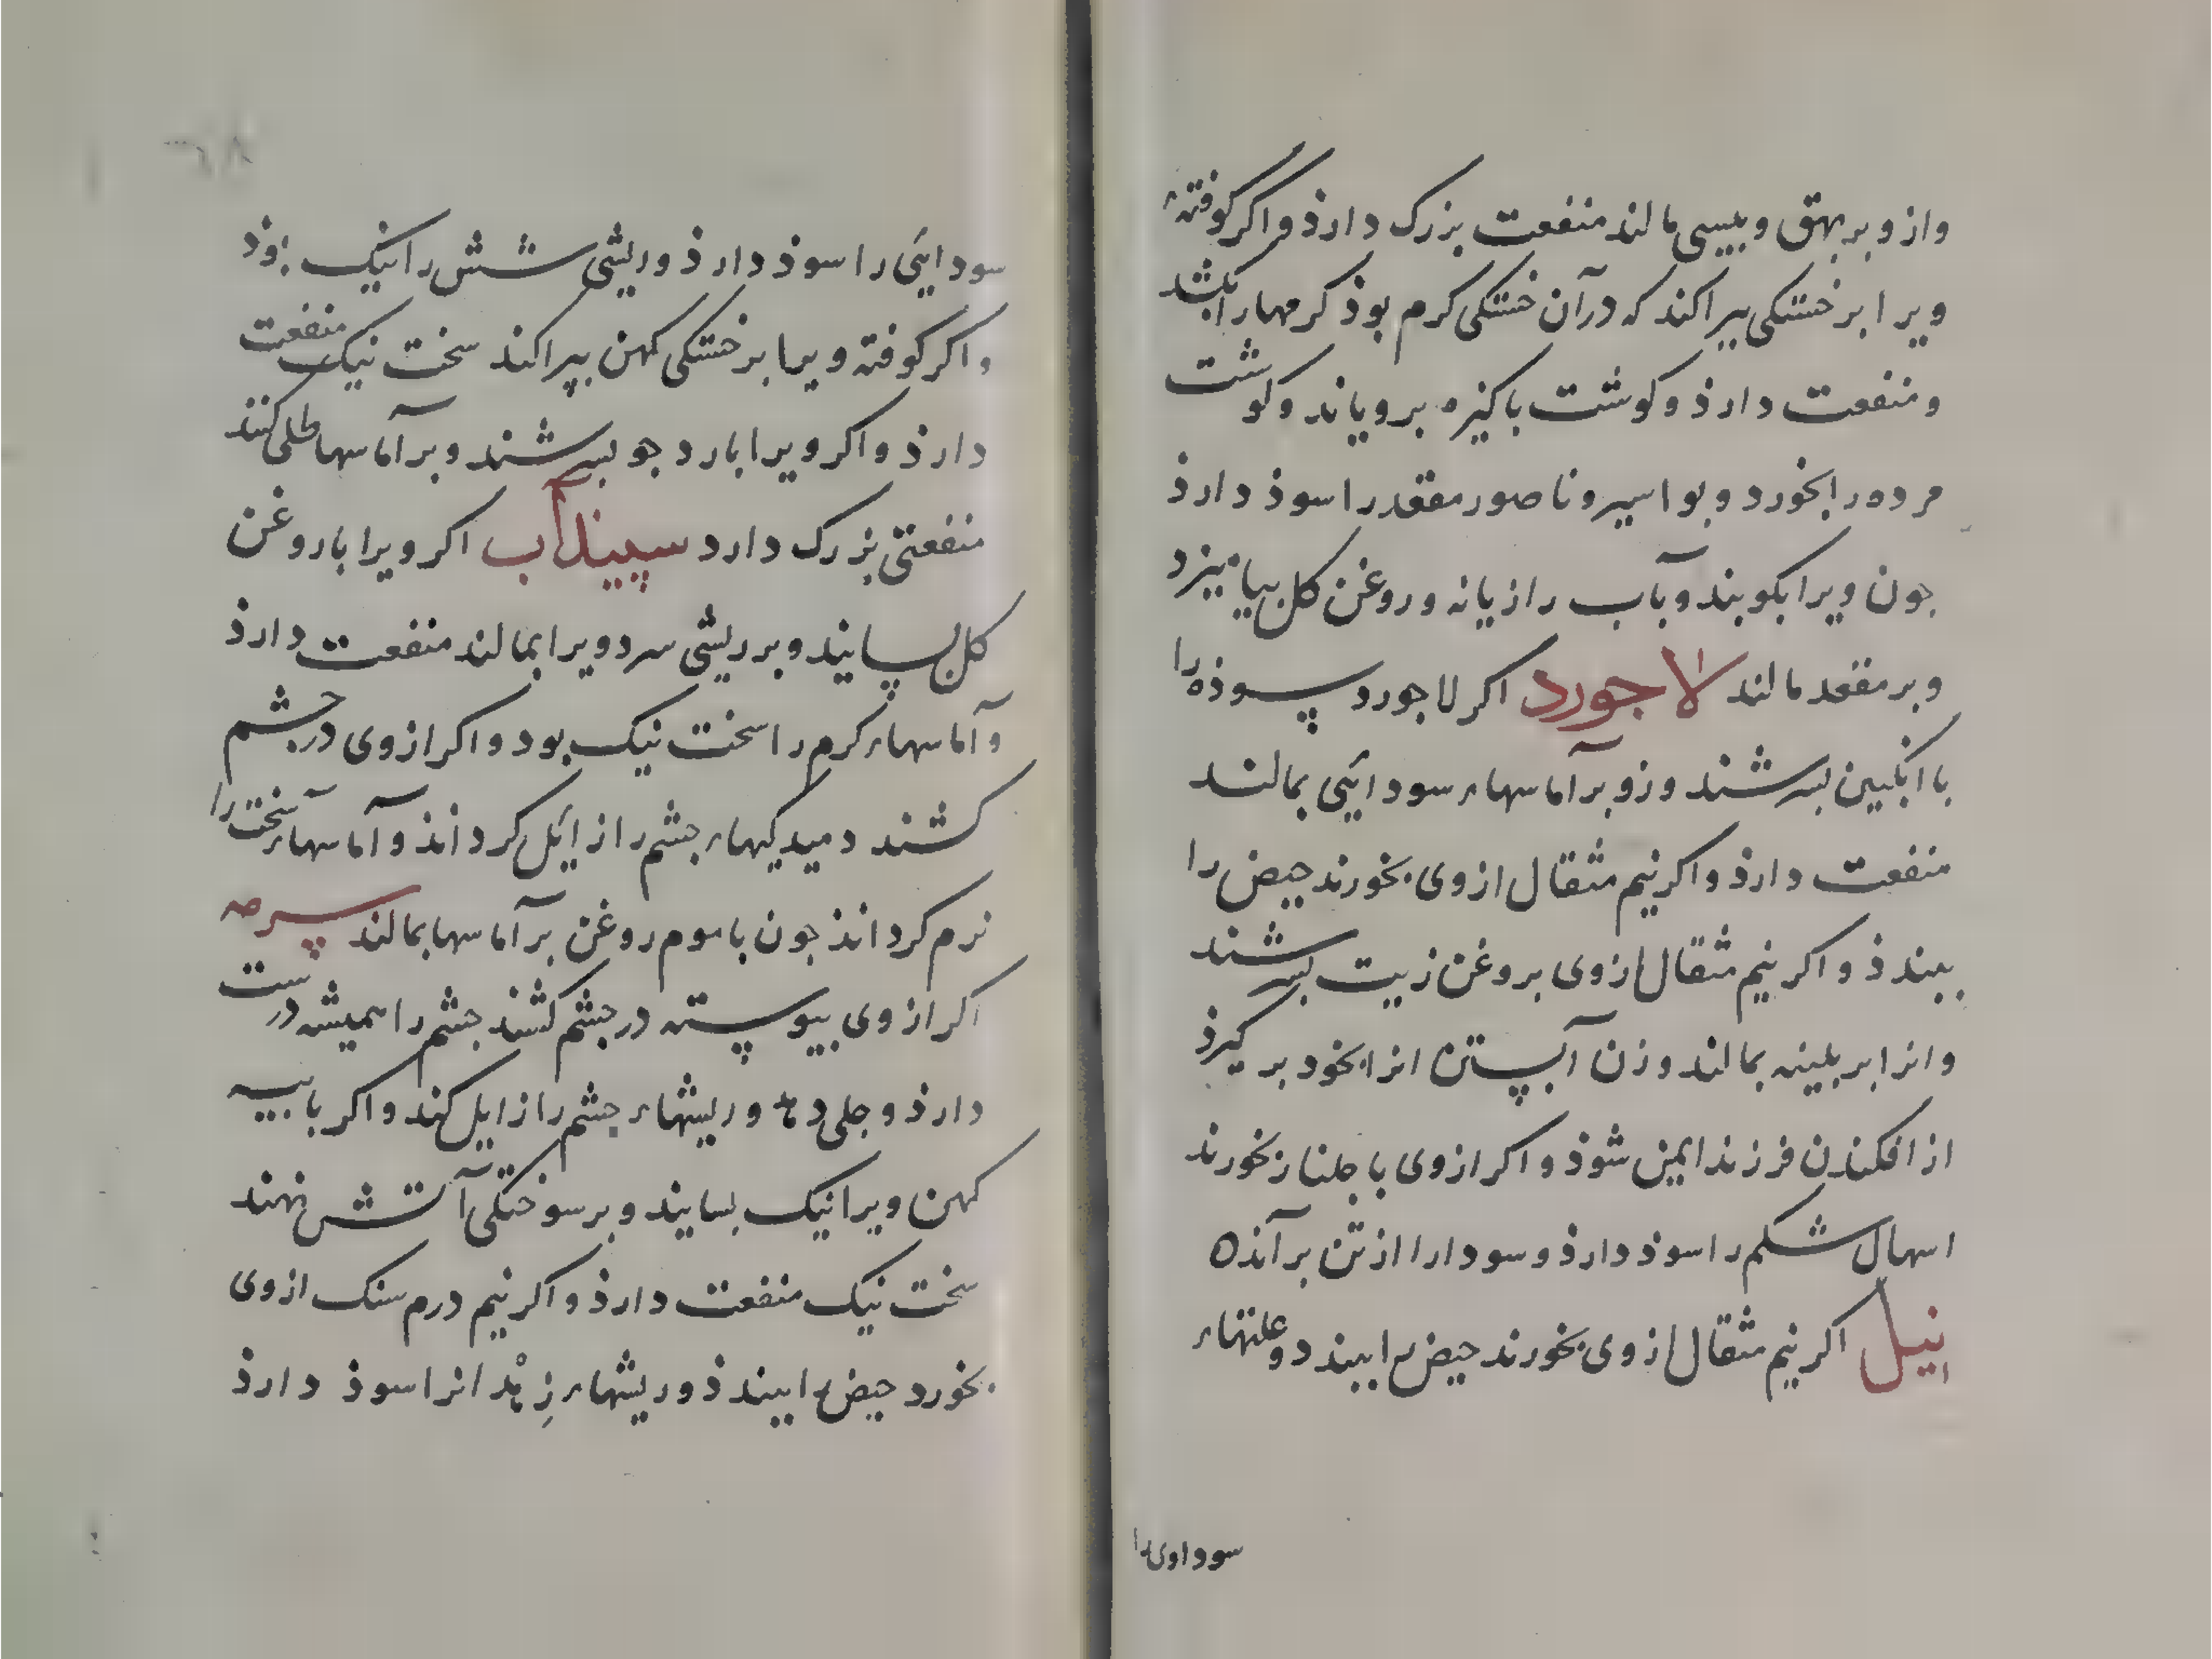 واز و بر بهق و پیسی مالند منفعت بزرک دارذ و اگر کوفتهٔ
ویرا بر خستکی بپراکند که در آن خستکی کرم بوذ کرمها را بکشد
و منفعت دارذ و کوشت باکیزه برویاند و کوشت
مرده را بخورد و بواسیر و ناصور مقعد را سوذ دارذ
جون ویرا بکوبند و بآب رازیانه و روغن کل بیامیزد
و بر مقعد مالند لاجورد اکر لاجورد سوذه را
با انکبین بسرشند وزو بر آماسهاء سودائی بمالند
منفعت دارذ و اکر نیم مثقال از وی بخورند حیض را
ببندذ و اکر نیم مثقال از وی بروغن زیت بسرشند
وانرا بر بلیته بمالند و زن آبستن انرا بخود بر کیرذ
از افکندن فرزند ایمن شوذ و اکر از وی با جلنار بخورند
اسهال شکم را سوذ دارذ و سودا را از تن بر آنده
نیل اکر نیم مثقال از وی بخورند حیض را ببندد و علتهاء
سوداوی را
سودائی را سوذ دارذ و ریشی شش را نیک بوذ
و اکر کوفته ویرا بر خستکی کهن بپراکند سخت نیک منفعت
دارذ و اکر ویرا بارد جو بسرشند و بر آماسها طلی کنند
منفعتی بزرک دارد سپیذآب اکر ویرا با روغن
کل بسایند و بر ریشی سرد ویرا بمالند منفعت دارذ
و آماسهاء کرم را سخت نیک بود و اکر از وی در جشم
کشند دمیدکیهاء جشم را زایل کردانذ و آماسهاء سخت را
نرم کردانذ جون با موم روغن بر آماسها بمالند سرمه
اکر از وی بیوسته در جشم کشند جشم را همیشه درست
دارذ و جلی دهذ و ریشهاء جشم را زایل کند و اکر با بیه
کهن ویرا نیک بسایند و بر سوختکی آتش نهند
سخت نیک منفعت دارذ و اکر نیم درم سنک از وی
بخورد حیض را ببندذ و ریشهاء زهدانرا سوذ دارذ